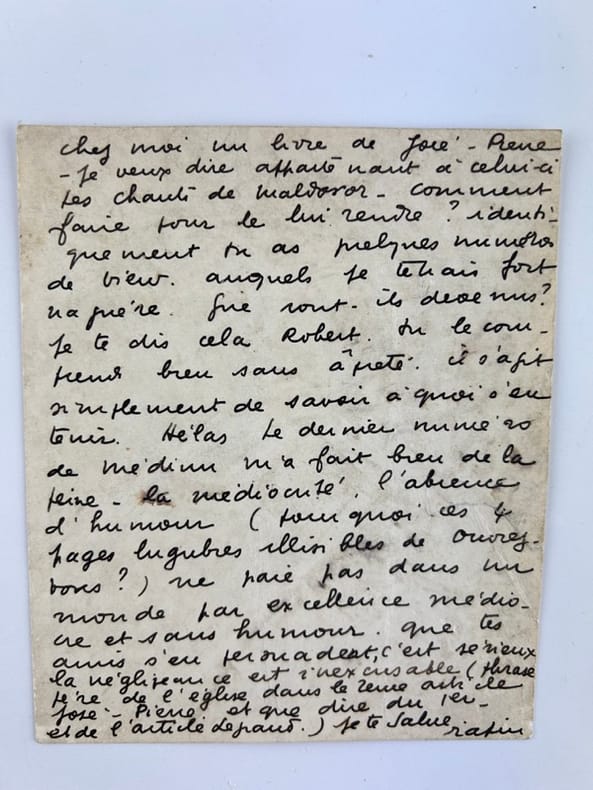 chez moi un livre de José-Pierre
- je veux dire appartenant à celui-ci
Les chants de maldoror - comment
faire pour le lui rendre ? identi-
quement tu as quelques numéros
de view. auxquels je tenais fort
naguère. Que sont-ils devenus ?
je te dis cela Robert. tu le com-
prends bien sans âpreté. il s'agit
simplement de savoir à quoi s'en
tenir. Hélas le dernier numéro
de médium m'a fait bien de la
peine - la médiocrité, l'absence
d'humour (pourquoi ces 4
pages lugubres illisibles de ouvrez-
vous ?) ne paie pas dans un
monde par excellence médio-
cre et sans humour. que tes
amis s'en persuadent, c'est sérieux
la négligeance est inexcusable (phrase
père de l'église dans le 2eme article
José-Pierre et que dire du 1er-
et de l'article .) je te salue.